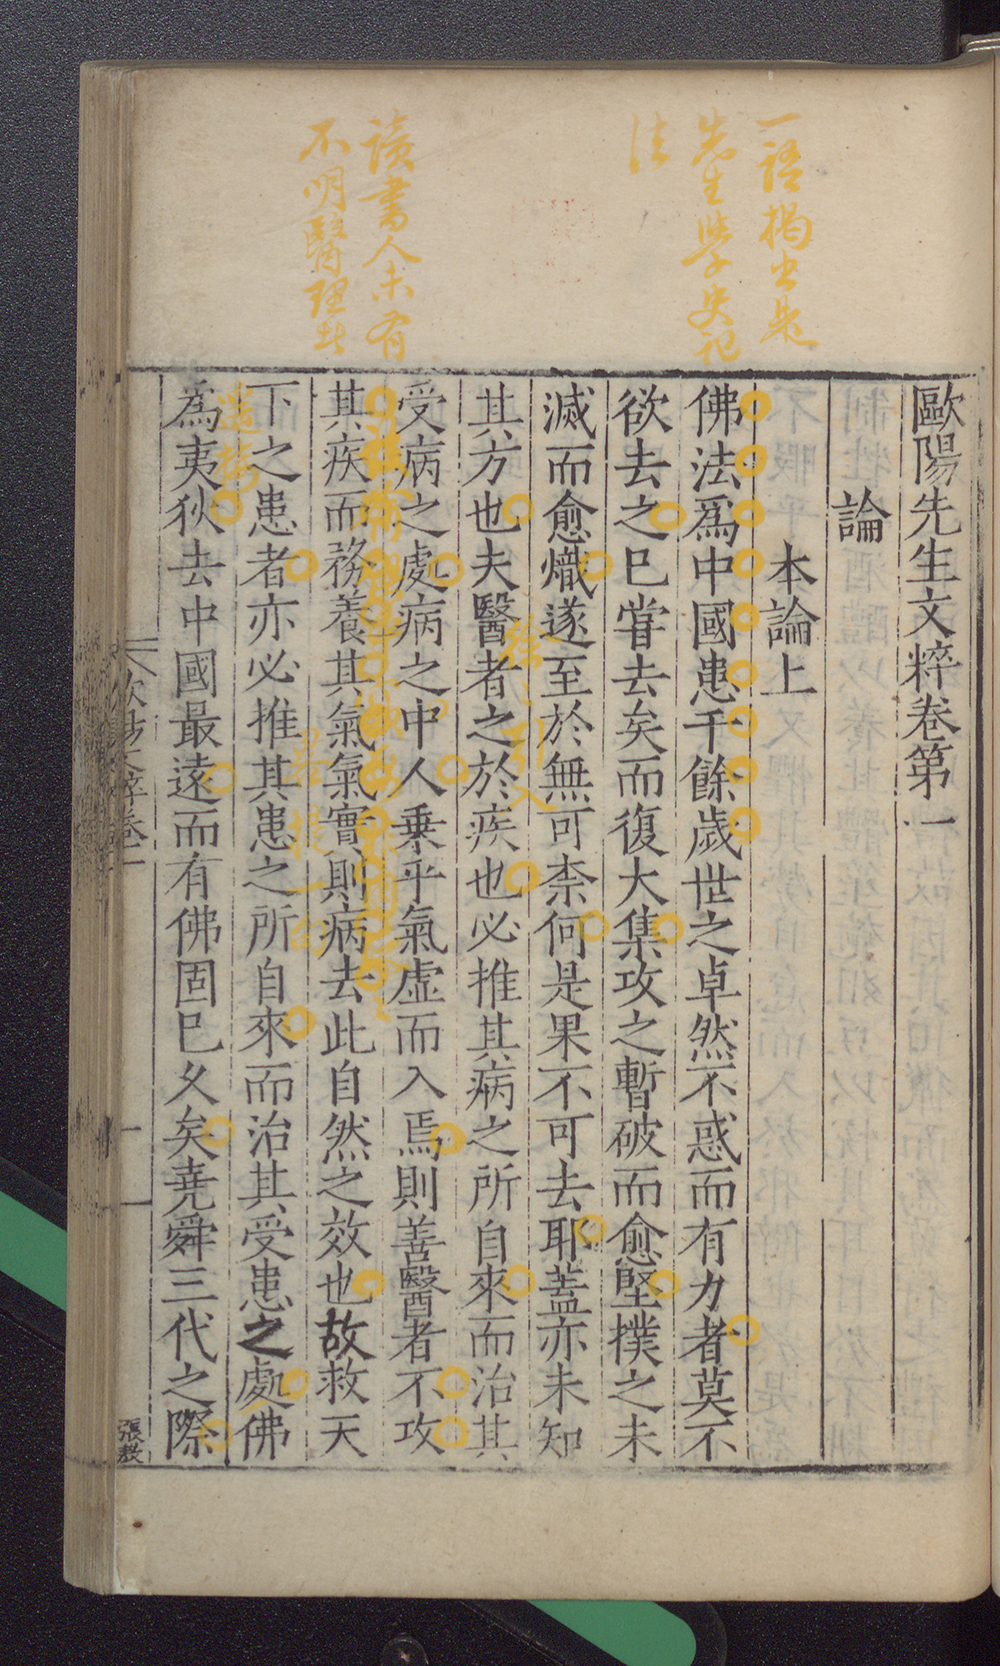 歐陽先生文粹卷第一
論
本論上
佛法爲中國患千餘歲世之卓然不惑而有力者莫不
欲去之已嘗去矣而復大集攻之暫破而愈堅撲之未
滅而愈熾遂至於無可柰何是果不可去耶蓋亦未知
其方也夫醫者之於疾也必推其病之所自來而治其
受病之處病之中人乗乎氣虛而入焉則善醫者不攻
其疾而務養其氣氣實則病去此自然之效也故救天
下之患者亦必推其患之所自來而治其受患之處佛
爲夷狄去中國最遠而有佛固已久矣堯舜三代之際
張敖
一語揭出是
先生學史記
法
讀書人未有
不明醫理